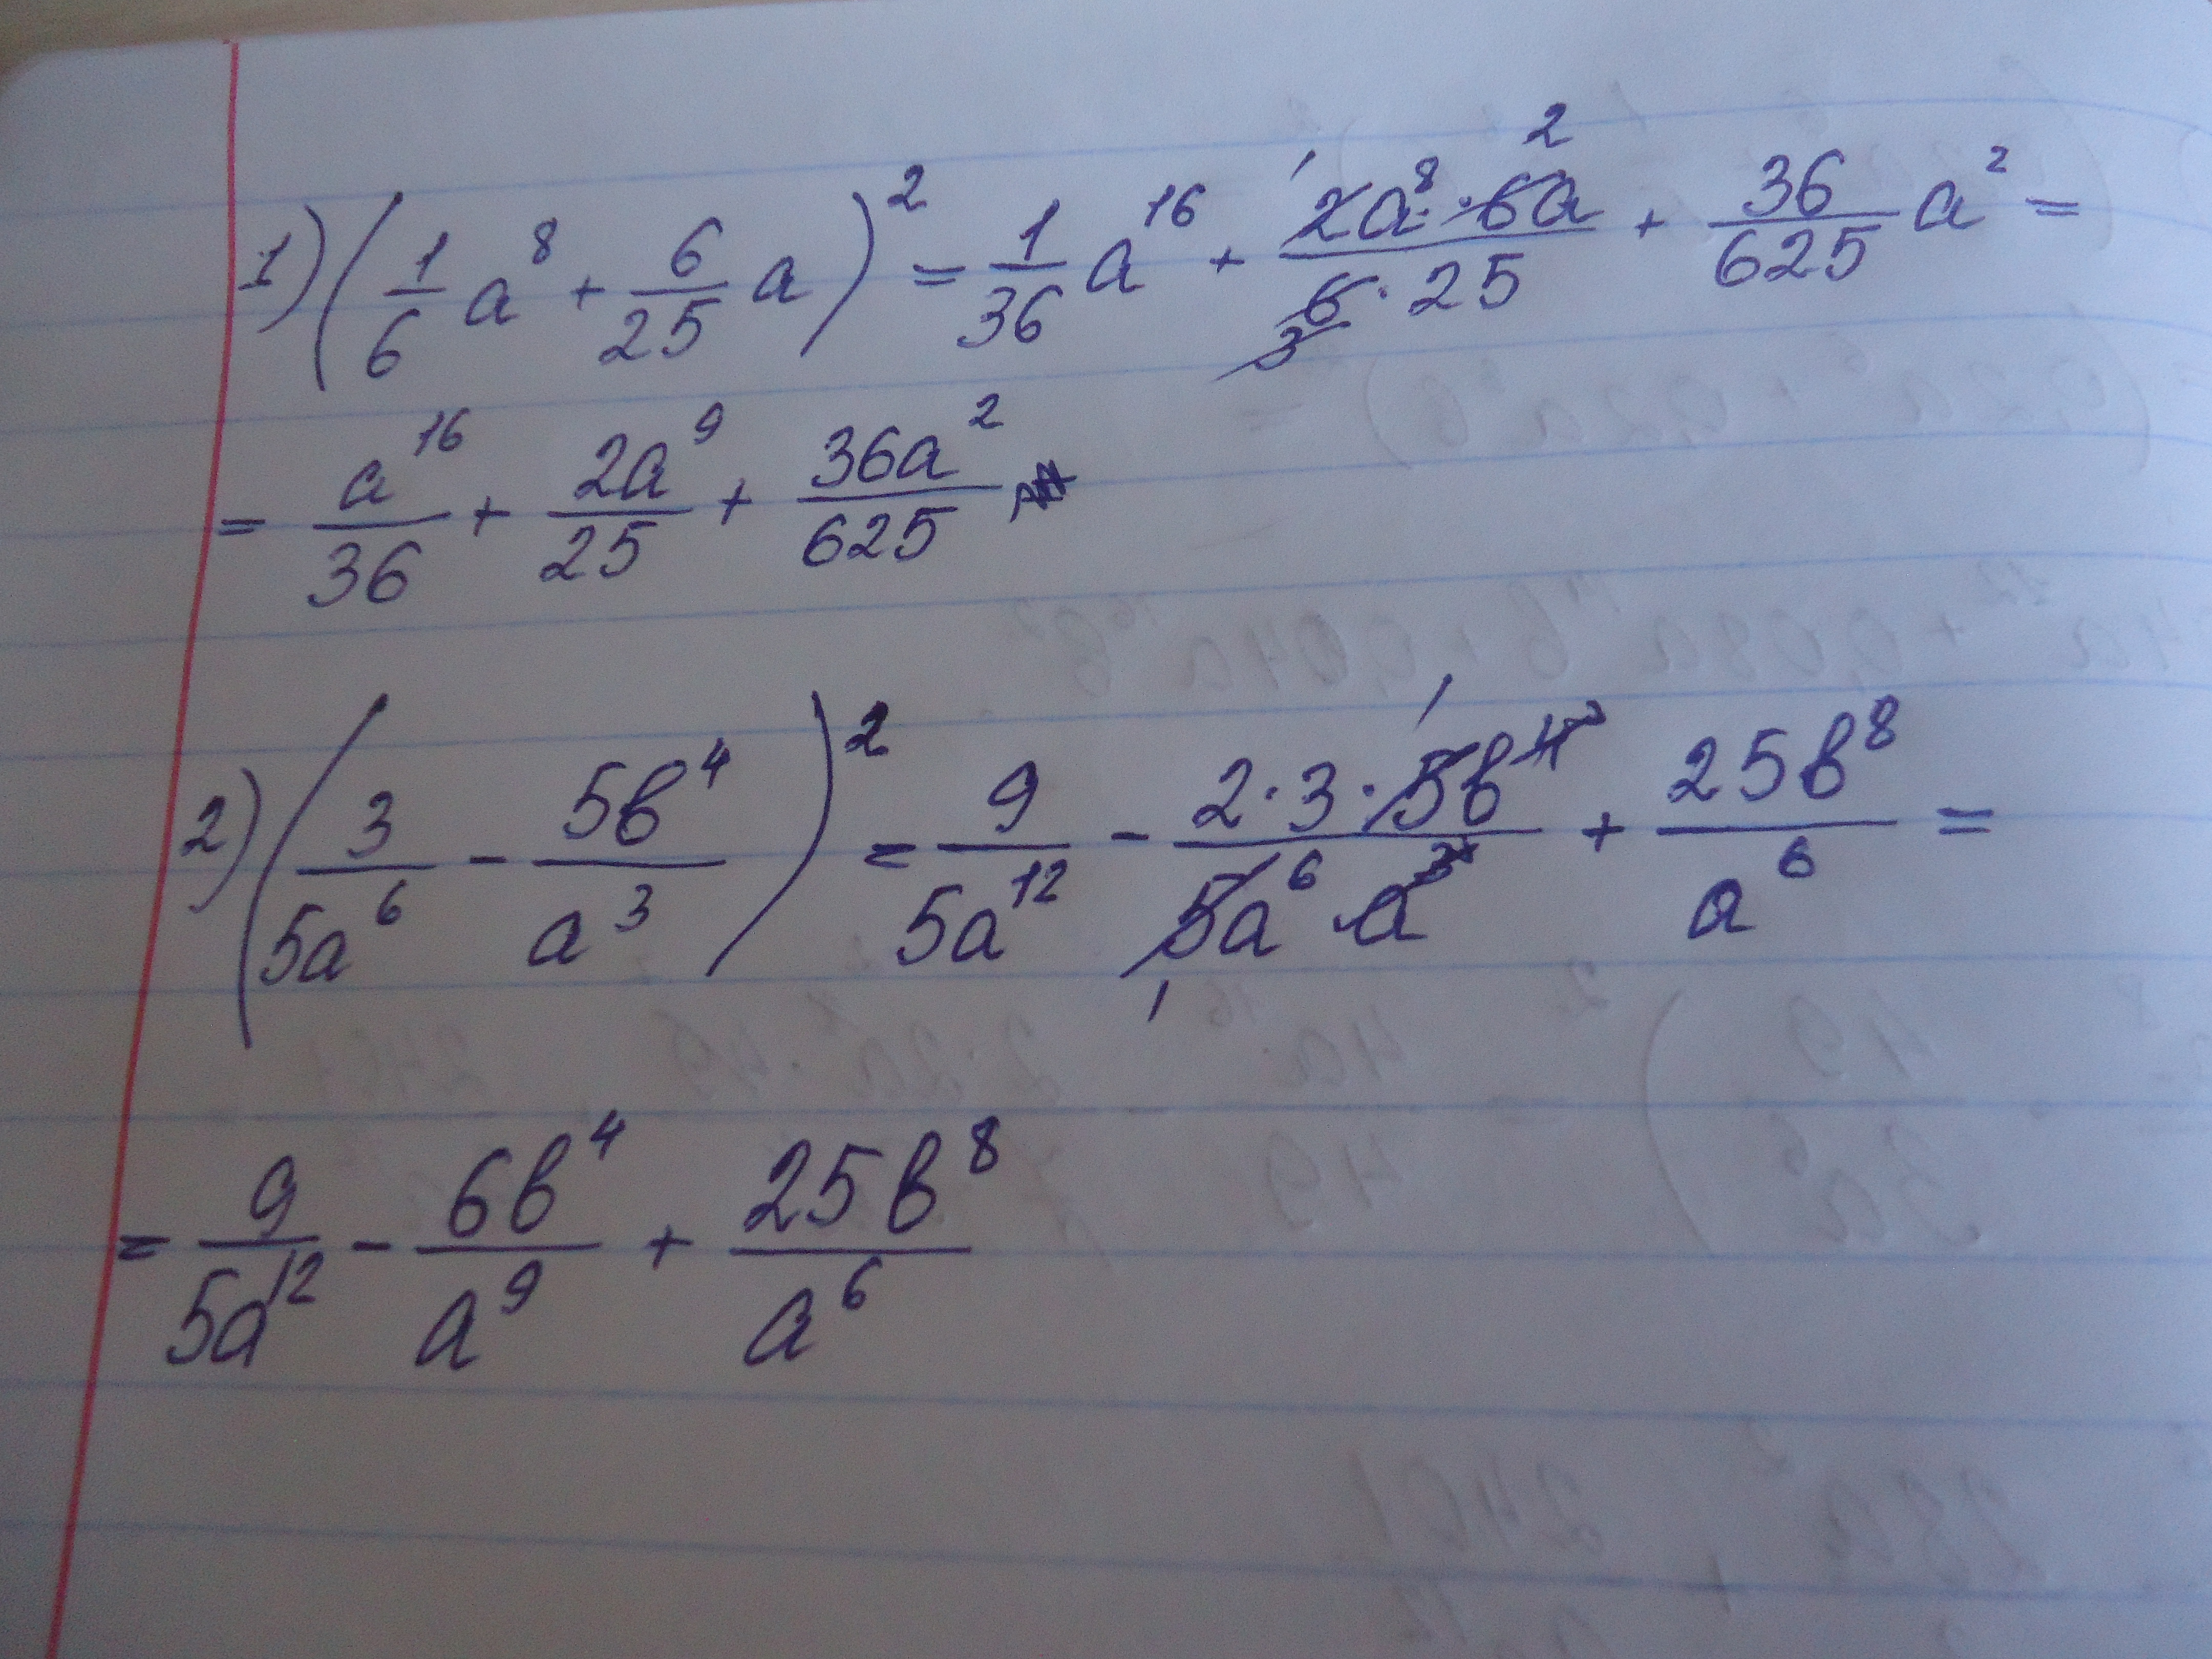 1) (1/6 a^8 + 6/25 a)^2 = 1/36 a^16 + (2a^8 · 6a)/(6 · 25) + 36/625 a^2 =
= a^16/36 + 2a^9/25 + 36a^2/625
2) (3/5a^6 - 5b^4/a^3)^2 = 9/5a^12 - (2·3·5b^4)/(5a^6 a^3) + 25b^8/a^6 =
= 9/5a^12 - 6b^4/a^9 + 25b^8/a^6